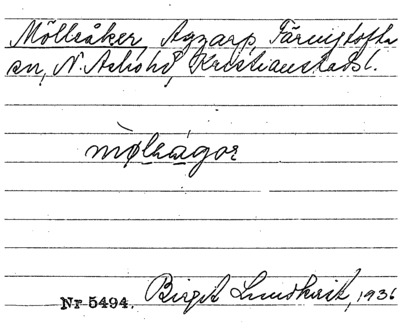 Möllsåker, Agnarp, Färingtofta
sn, N. Åsbo hd, Kristianstads l.
mølsågor
Nr 5494. Birgit Lundkvist, 1936